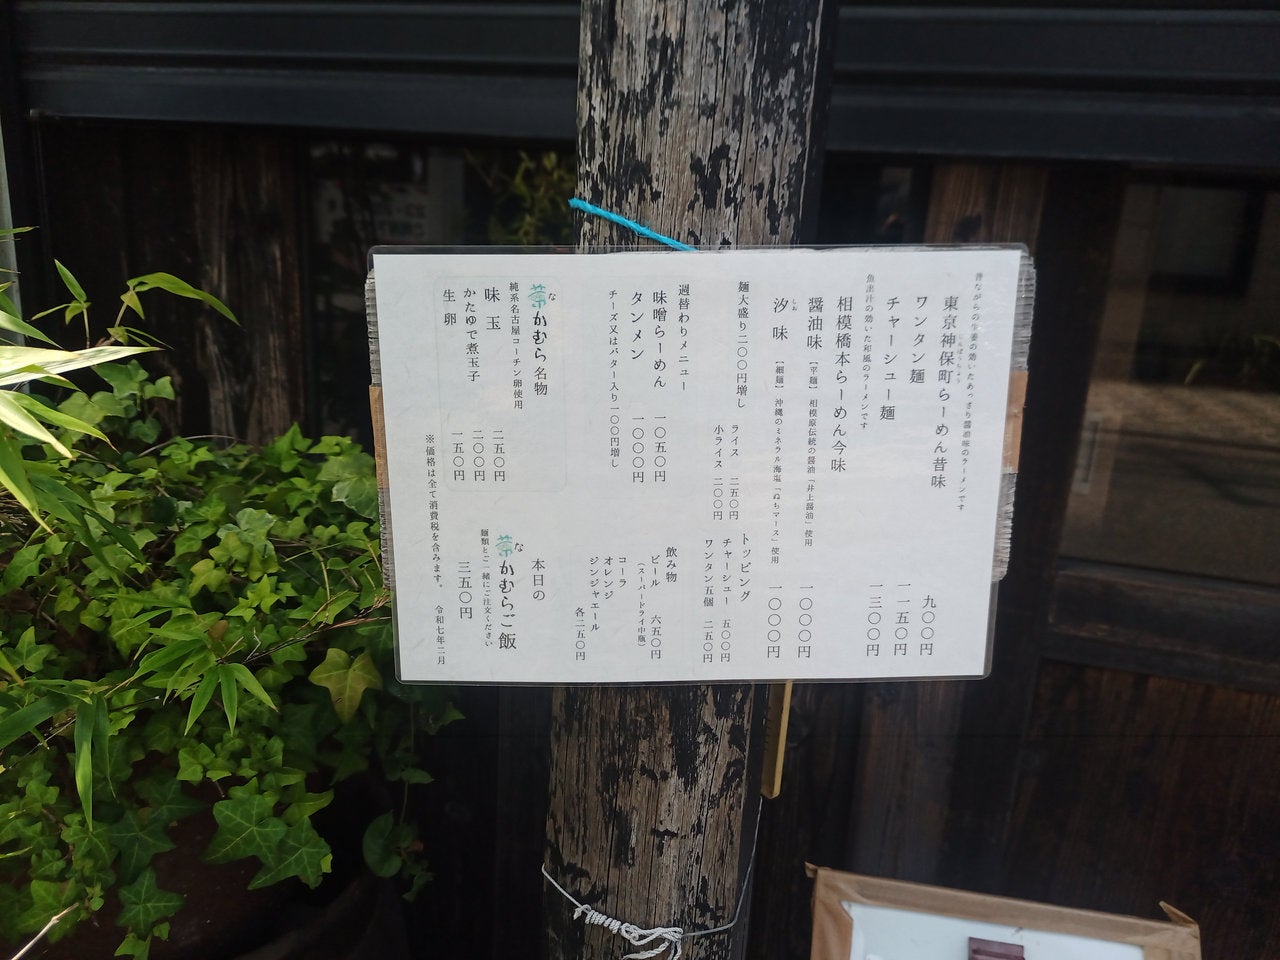 昔ながらの生姜の効いたあっさり醤油味のラーメンです
東京神保町らーめん昔味 九〇〇円
じんぼうちょう
ワンタン麺 一一五〇円
チャーシュー麺 一三〇〇円
魚出汁の効いた和風のラーメンです
相模橋本らーめん今味
醤油味 【平麺】 相模原伝統の醤油「井上醤油」使用 一〇〇〇円
汐味 【細麺】 沖縄のミネラル海塩「ぬちマース」使用 一〇〇〇円
しお
麺大盛り二〇〇円増し
ライス 二五〇円
小ライス 二〇〇円
トッピング
チャーシュー 五〇〇円
ワンタン五個 二五〇円
週替わりメニュー
味噌らーめん 一〇五〇円
タンメン 一〇〇〇円
チーズ又はバター入り一〇〇円増し
飲み物
ビール 六五〇円
(スーパードライ中瓶)
コーラ
オレンジ
ジンジャエール
各二五〇円
な
かむら名物
純系名古屋コーチン卵使用
味玉 二五〇円
かたゆで煮玉子 二〇〇円
生卵 一五〇円
本日の
な
かむらご飯
麺類とご一緒にご注文ください
三五〇円
※価格は全て消費税を含みます。 令和七年二月